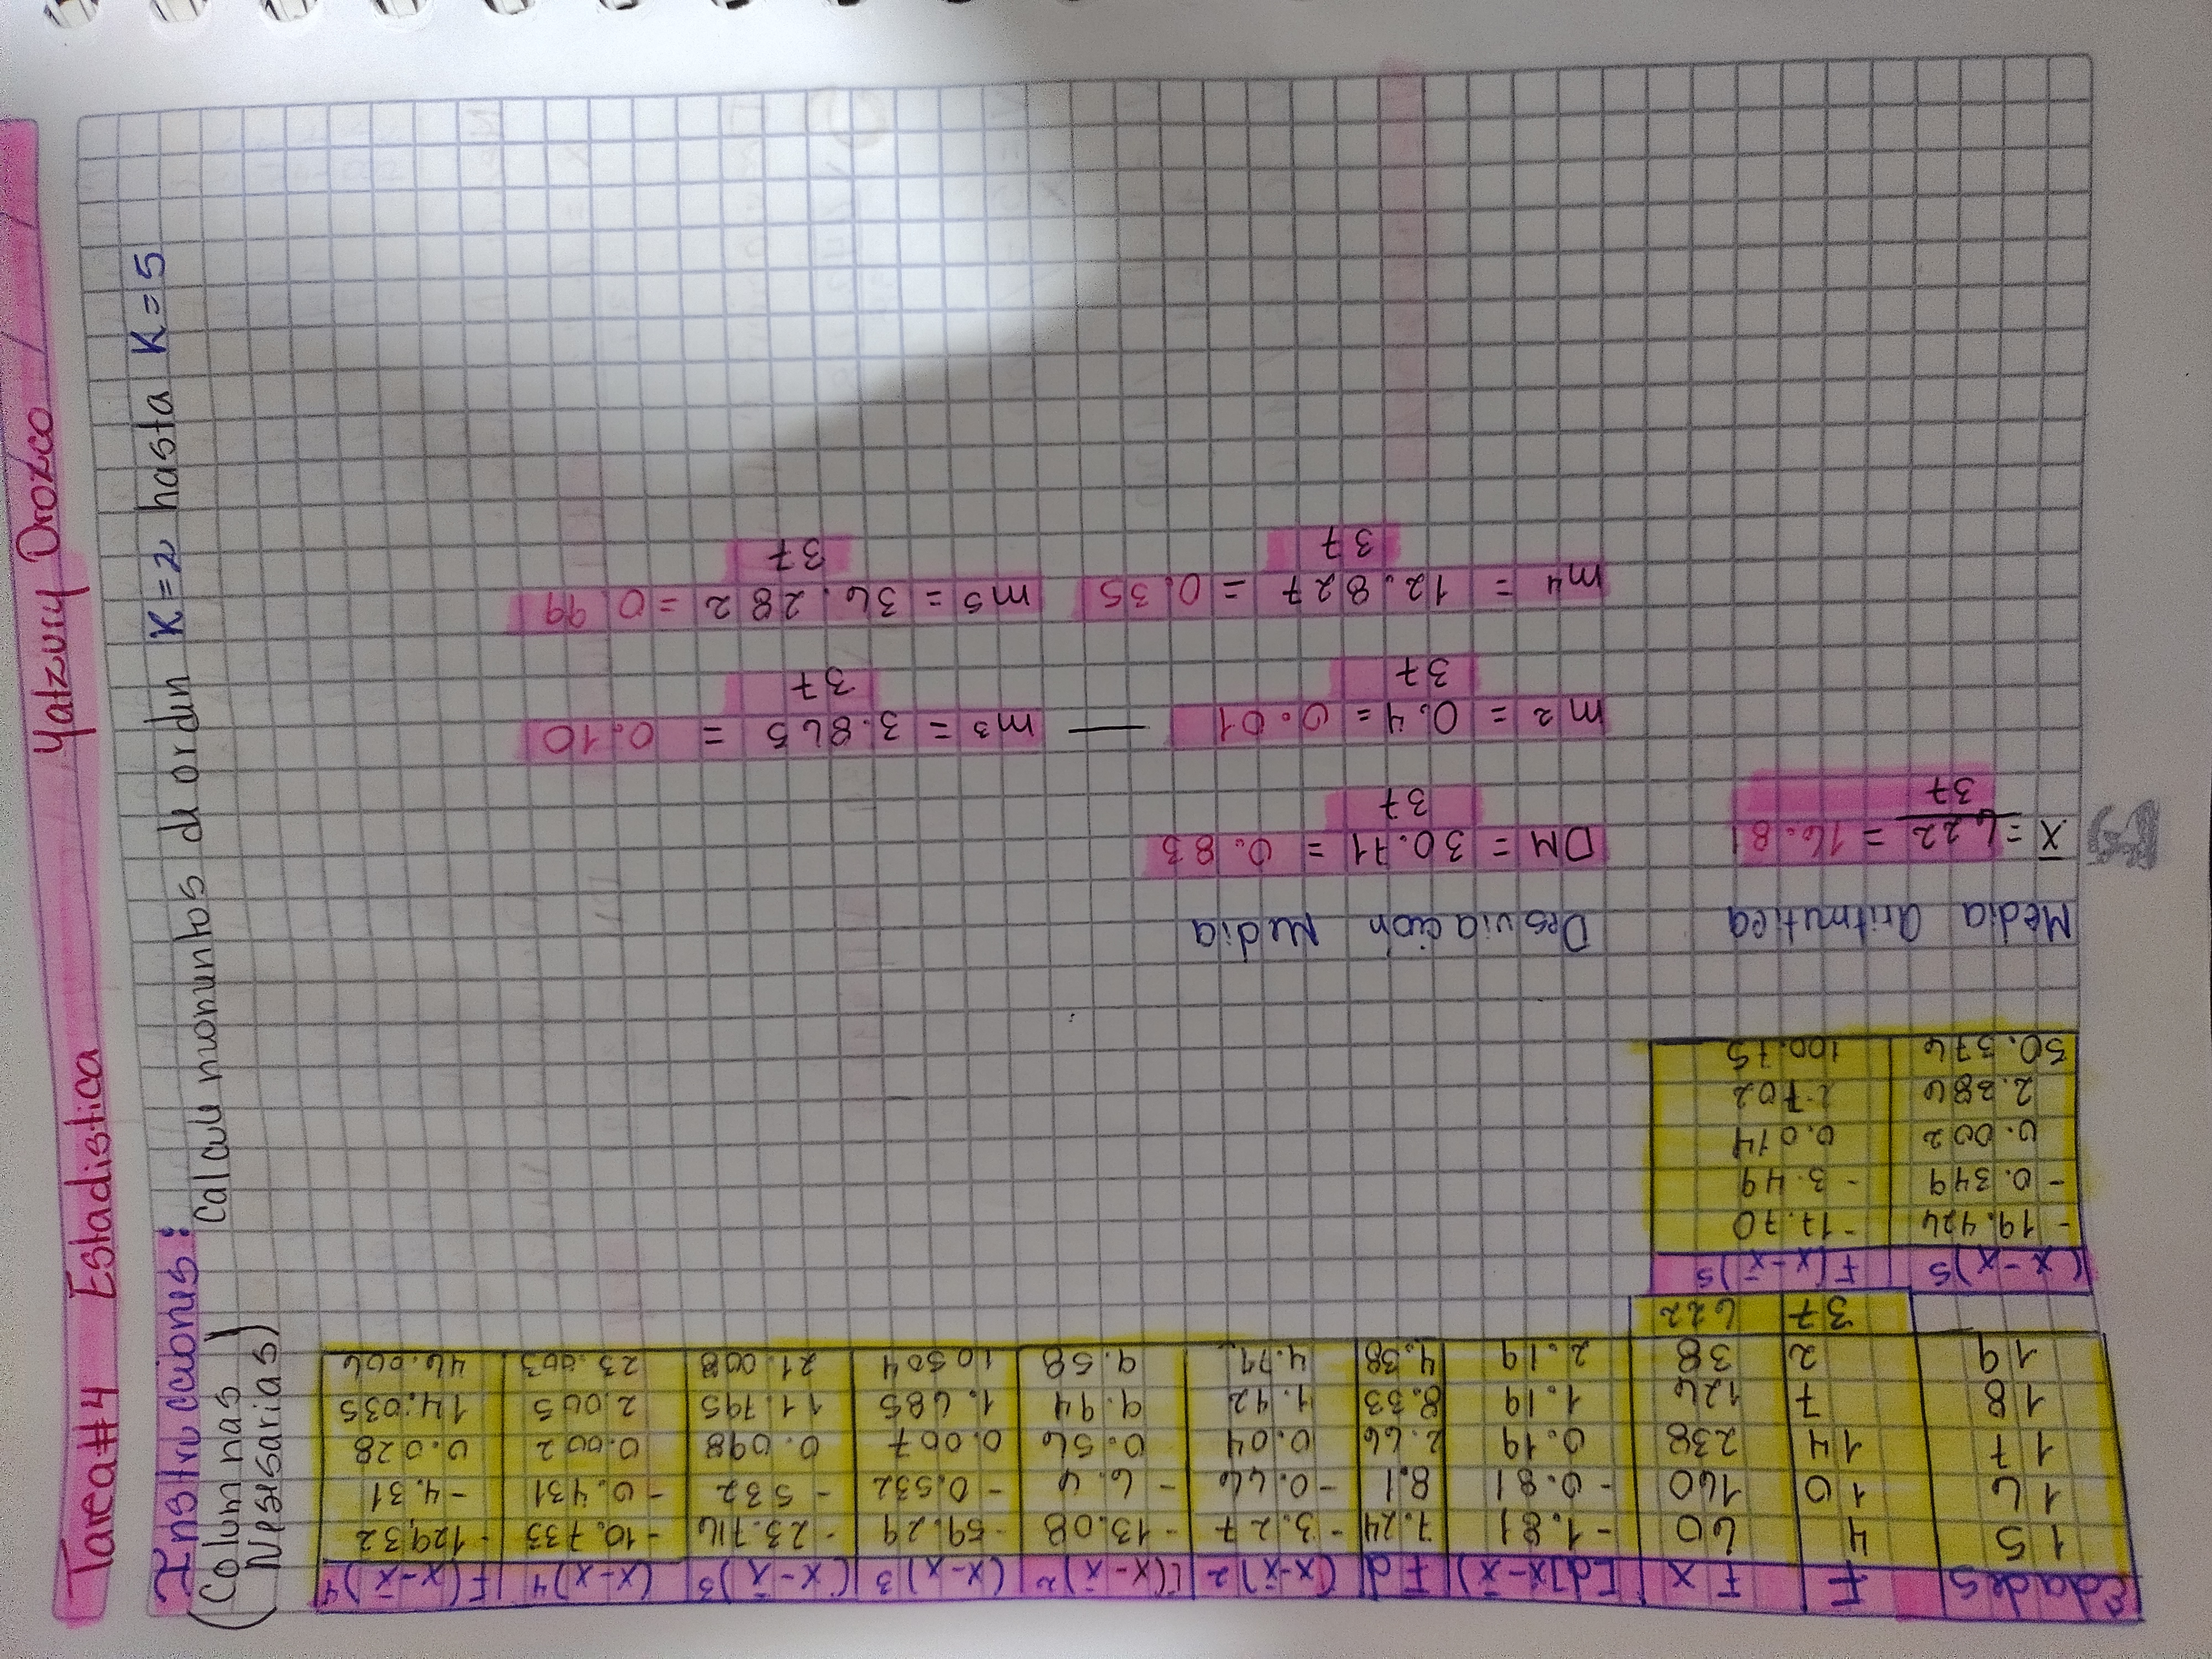 Tarea #4 Estadistica Yatzury Orozco
Instrucciones:
Calcule momentos de orden K=2 hasta K=5
(Columnas
Nesesarias)
Edades | F | F x | [d]x-x̄) | Fd | (x-x̄)2 | F(x-x̄)² | (x-x)³ | (x-x̄)³ | (x-x)4 | F(x-x̄)4
15 | 4 | 60 | -1.81 | 7.24 | -3.27 | -13.08 | -59.29 | -23.716 | -10.733 | -129,32
16 | 10 | 160 | -0.81 | 8.1 | -0.66 | -6.6 | -0.532 | -532 | -0.431 | -4.31
17 | 14 | 238 | 0.19 | 2.66 | 0.04 | 0.56 | 0.007 | 0.098 | 0.002 | 0.028
18 | 7 | 126 | 1.19 | 8.33 | 1.42 | 9.94 | 1.685 | 11.795 | 2.005 | 14.035
19 | 2 | 38 | 2.19 | 4.38 | 4.79 | 9.58 | 10.504 | 21.008 | 23.003 | 46.006
37 | 622
(x-x)5 | F(x-x̄)5
-19.424 | -17.70
-0.349 | -3.49
0.002 | 0.014
2.386 | 2.702
50.376 | 100.75
Media aritmetica Desviación Media
x̄ = 622 = 16.81 DM = 30.71 = 0.83
37 37
m2 = 0.4 = 0.01 — m³ = 3.865 = 0.10
37 37
m4 = 12.827 = 0.35 m5 = 36.282 = 0.99
37 37